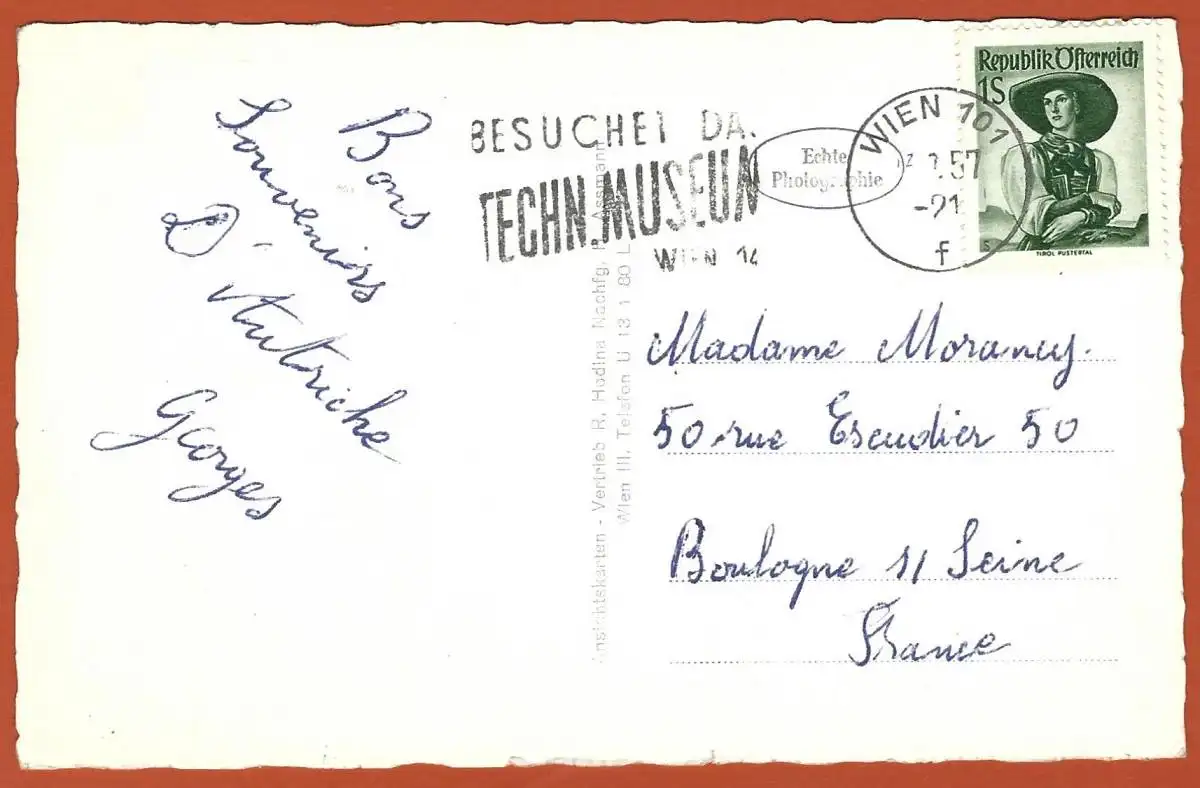 Bons
Souvenirs
D'Autriche
Georges
BESUCHET DA.
TECHN. MUSEUM
WIEN 14
Echte
Photographie
WIEN 101
.57
-21
f
Republik Österreich
1S
S
TIROL PUSTERTAL
Ansichtskarten - Vertrieb R. Hodina Nachfg. Assmann
Wien III. Telefon U 13 1 80 L
Madame Morancy.
50 rue Escudier 50
Boulogne s/ Seine
France